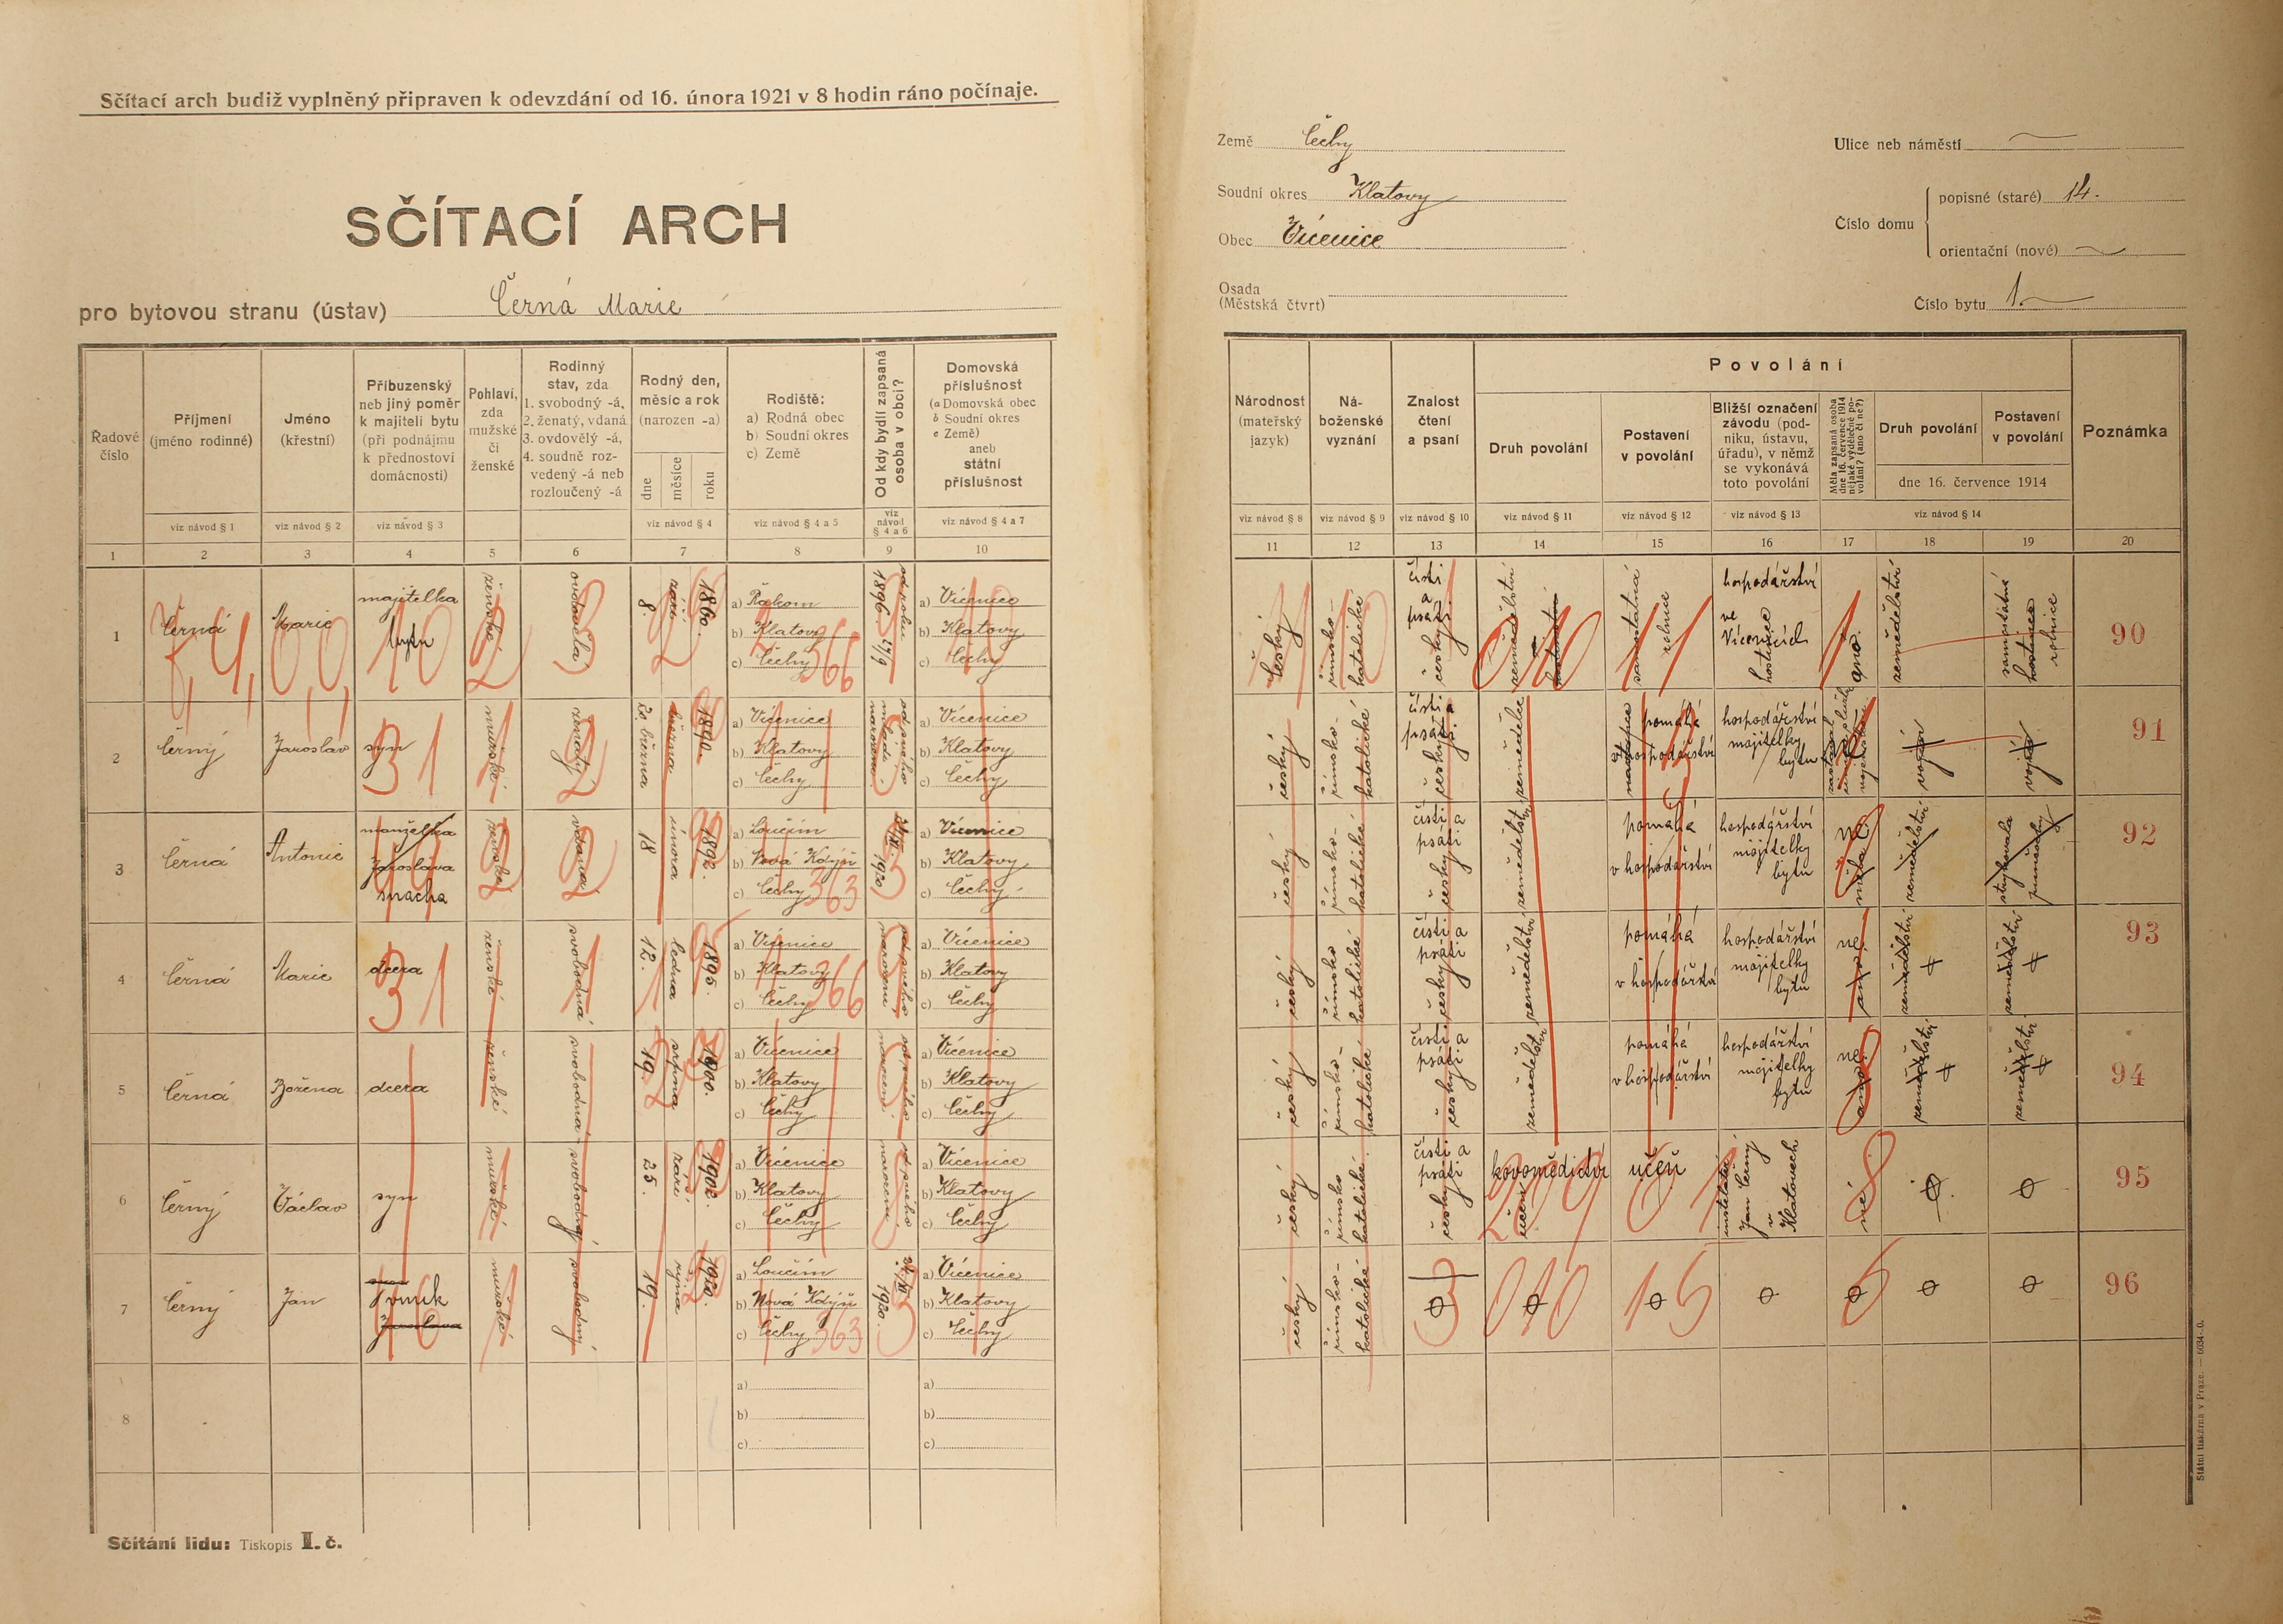 Sčítací arch budiž vyplněný připraven k odevzdání od 16. února 1921 v 8 hodin ráno počínaje.
SČÍTACÍ ARCH
pro bytovou stranu (ústav) Černá Marie
Země Čechy
Soudní okres Klatovy
Obec Vícenice
Osada
(Městská čtvrt)
Ulice neb náměstí
Číslo domu
popisné (staré) 14.
orientační (nové)
Číslo bytu 1.
Řadové číslo
Příjmení (jméno rodinné)
Jméno (křestní)
Příbuzenský neb jiný poměr k majiteli bytu (při podnájmu k přednostovi domácnosti)
Pohlaví, zda mužské či ženské
Rodinný stav, zda 1. svobodný -á, 2. ženatý, vdaná 3. ovdovělý -á, 4. soudně rozvedený -á neb rozloučený -á
Rodný den, měsíc a rok (narozen -a)
dne
měsíce
roku
Rodiště: a) Rodná obec b) Soudní okres c) Země
Od kdy bydlí zapsaná osoba v obci?
Domovská příslušnost (a Domovská obec b Soudní okres c Země) aneb státní příslušnost
viz návod § 1
viz návod § 2
viz návod § 3
viz návod § 4
viz návod § 4 a 5
viz návod § 4 a 6
viz návod § 4 a 7
1 2 3 4 5 6 7 8 9 10
Národnost (mateřský jazyk)
Náboženské vyznání
Znalost čtení a psaní
Povolání
Druh povolání
Postavení v povolání
Bližší označení závodu (podniku, ústavu, úřadu), v němž se vykonává toto povolání
Měla zapsaná osoba dne 16. července 1914 nějaké výdělečné povolání? (ano či ne?)
Druh povolání
Postavení v povolání
dne 16. července 1914
Poznámka
viz návod § 8
viz návod § 9
viz návod § 10
viz návod § 11
viz návod § 12
viz návod § 13
viz návod § 14
11 12 13 14 15 16 17 18 19 20
1 Černá Marie majitelka bytu ženské ovdovělá 8. září 1860. a) Rakom b) Klatovy c) Čechy 366 od roku 1896 a) Vícenice b) Klatovy c) Čechy
český římsko-katolické čísti a psáti česky zemědělství samostatná rolnice hospodářství ve Vícenicích ano. zemědělství samostatná rolnice 90
2 Černý Jaroslav syn mužské ženatý 20. března 1890. a) Vícenice b) Klatovy c) Čechy a) Vícenice b) Klatovy c) Čechy
český římsko-katolické čísti a psáti česky zemědělec pomáhá v hospodářství hospodářství majitelky bytu voják voják 91
3 Černá Antonie manželka Jaroslava snacha ženské vdaná 18 února 1892. a) Loučim b) Nová Kdýň c) Čechy 363 1920 a) Vícenice b) Klatovy c) Čechy
český římsko-katolické čísti a psáti česky zemědělství pomáhá v hospodářství hospodářství majitelky bytu ne zemědělství 92
4 Černá Marie dcera ženské svobodná 12. ledna 1895. a) Vícenice b) Klatovy c) Čechy 366 od prvého narození a) Vícenice b) Klatovy c) Čechy
český římsko katolické čísti a psáti česky zemědělství pomáhá hospodářství majitelky bytu ne. ano. zemědělství zemědělství 93
5 Černá Božena dcera ženské svobodná 19. srpna 1900. a) Vícenice b) Klatovy c) Čechy od prvého narození. a) Vícenice b) Klatovy c) Čechy
český římsko-katolické čísti a psáti česky zemědělství pomáhá v hospodářství hospodářství majitelky bytu ne. ano. zemědělství zemědělství 94
6 Černý Václav syn mužské svobodný 25. září 1902. a) Vícenice b) Klatovy c) Čechy od prvého narození a) Vícenice b) Klatovy c) Čechy
český římsko katolické čísti a psáti česky učeň Jan Černý v Klatovech ne 95
7 Černý Jan vnuk Jaroslava mužské svobodný 19. října 1920. a) Loučim b) Nová Kdýň c) Čechy 363 1920. a) Vícenice b) Klatovy c) Čechy
český římsko-katolické 010 15 96
8 a) b) c) a) b) c)
Sčítání lidu: Tiskopis I. č.
Státní tiskárna v Praze. — 6034-0.